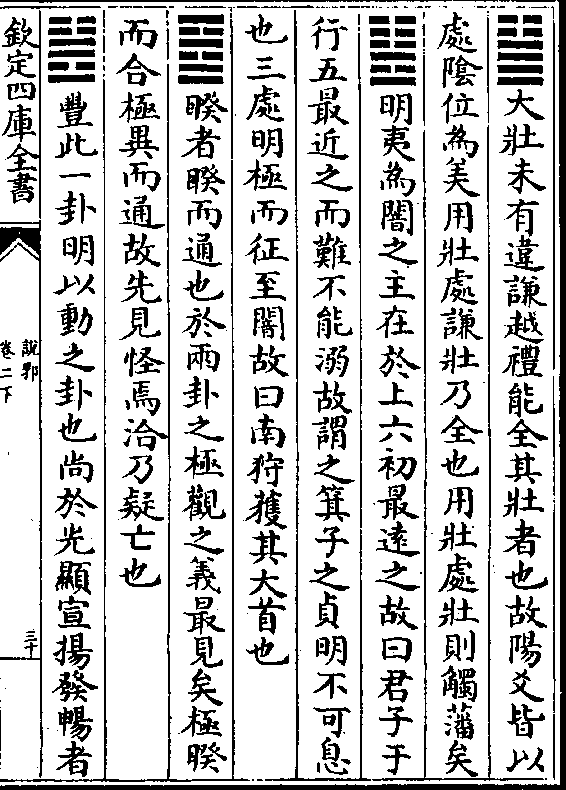 ䷡大壯未有違謙越禮能全其壯者也故陽爻皆以
處陰位為美用壯處謙壯乃全也用壯處壯則觸藩矣
䷣明夷為闇之主在於上六初最遠之故曰君子于
行五最近之而難不能溺故謂之箕子之貞明不可息
也三處明極而征至闇故曰南狩獲其大首也
䷥睽者睽而通也於兩卦之極觀之義最見矣極睽
而合極異而通故先見怪焉洽乃疑亡也
䷶豐此一卦明以動之卦也尚於光顯宣揚發暢者
欽定四庫全書
說郛
卷二下
三十